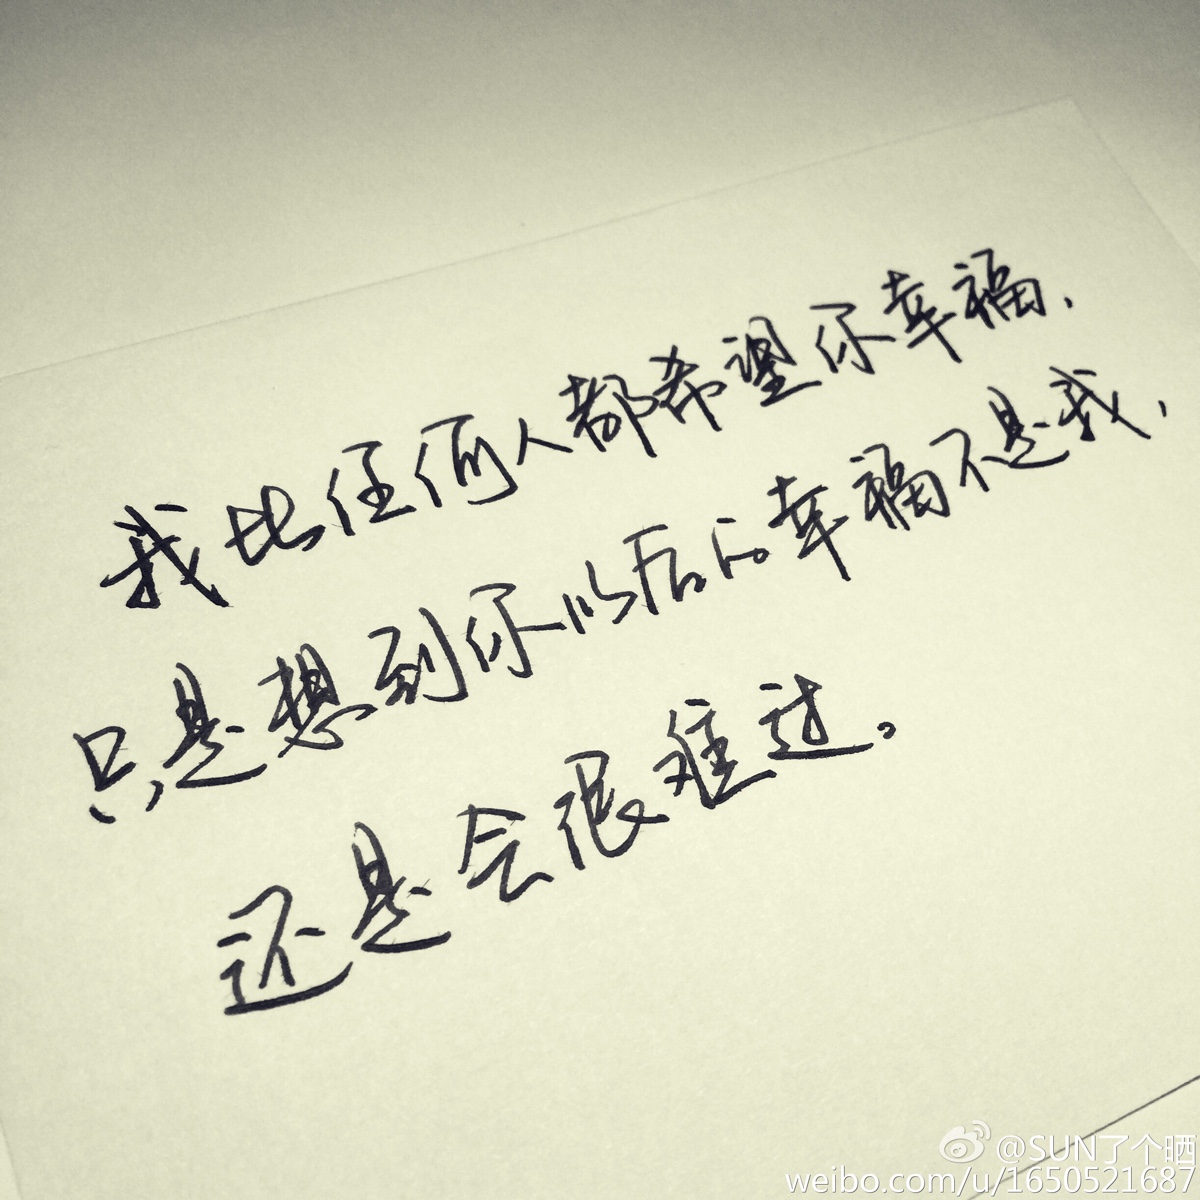 我比任何人都希望你幸福,
只是想到你以后的幸福不是我,
还是会很难过。
@SUN了个晒
weibo.com/u/1650521687